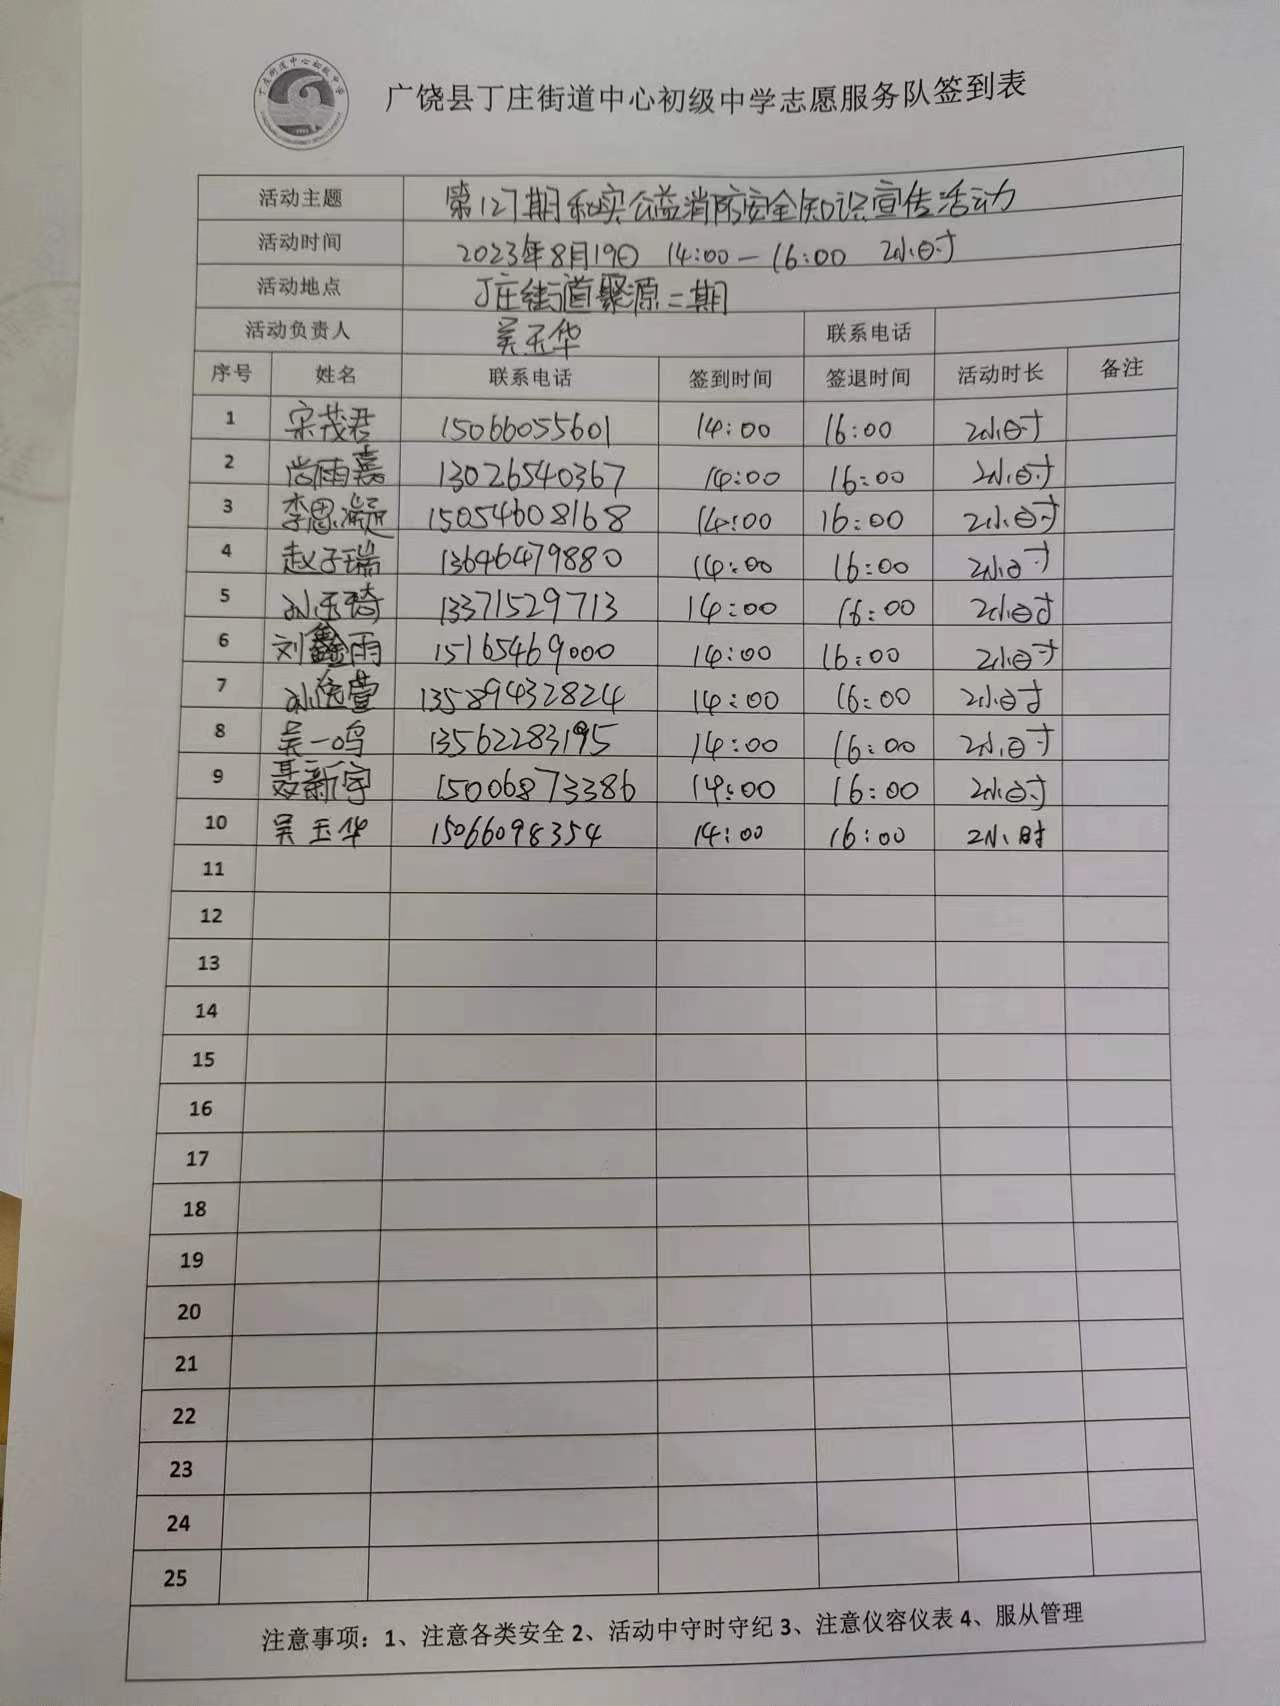 丁庄街道中心初级中学
广饶县丁庄街道中心初级中学志愿服务队签到表
活动主题 第127期和实公益消防安全知识宣传活动
活动时间 2023年8月19日 14:00—16:00 2小时
活动地点 丁庄街道聚源二期
活动负责人 吴玉华 联系电话
序号 姓名 联系电话 签到时间 签退时间 活动时长 备注
1 宋茂君 15066055601 14:00 16:00 2小时
2 尚雨嘉 13026540367 14:00 16:00 2小时
3 李思凝 15054608168 14:00 16:00 2小时
4 赵子瑞 13646479880 14:00 16:00 2小时
5 孙玉琦 13371529713 14:00 16:00 2小时
6 刘鑫雨 15165469000 14:00 16:00 2小时
7 13589432824 14:00 16:00 2小时
8 吴一鸣 13562283195 14:00 16:00 2小时
9 聂新宇 15006873386 14:00 16:00 2小时
10 吴玉华 15066098354 14:00 16:00 2小时
11
12
13
14
15
16
17
18
19
20
21
22
23
24
25
注意事项：1、注意各类安全 2、活动中守时守纪 3、注意仪容仪表 4、服从管理